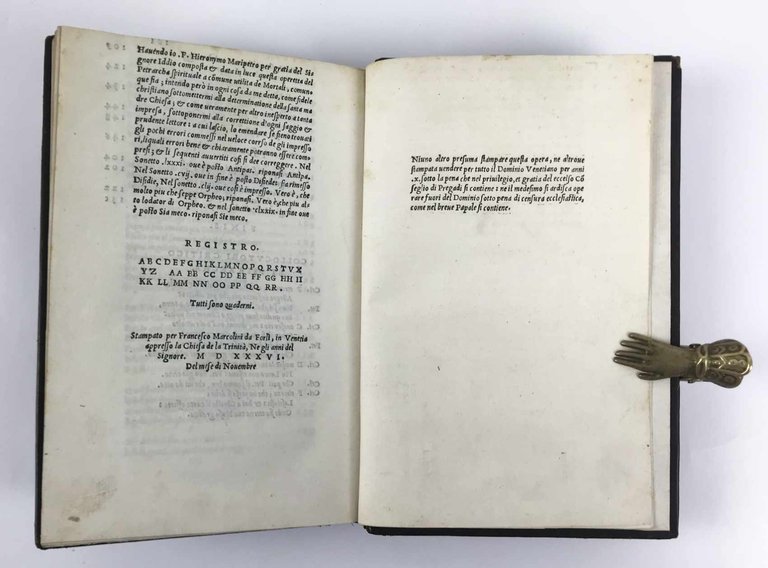 Hauendo io .F. Hieronymo Maripetro per gratia del Si
gnore Iddio composta & data in luce questa operetta del
Petrarcha spirituale a comune utilita de Mortali, comun
que sia; intendo però in ogni cosa da me detta, come fidele
christiano sottomettermi alla determinatione della santa ma
dre Chiesa; & come ueramente per altro inesperto a tanta
impresa, sottopormi alla correttione d'ogni saggio &
prudente lettore: a cui lascio, lo emendare se sieno trouati
gli pochi errori commessi nel ueloce corso de gli impresso
ri, liquali errori bene & chiaramente potranno essere com
presi; & li sequenti auuertiti cosi si dee correggere. Nel
Sonetto .lxxi. oue è posto Antipas. riponasi Antipa.
Nel Sonetto .cvij. oue in fine è posto Disfide: sia rimesso
Disfidie, Nel sonetto .clj. oue cosi è impresso. Vero è, che
molto piu che seppe Orpheo, riponasi. Vero è, che piu al
to lodator di Orpheo. & nel sonetto clxxix. in fine oue
è posto Sia meco. riponasi Sie meco.
REGISTRO.
A B C D E F G H I K L M N O P Q R S T V X
Y Z AA BB CC DD EE FF GG HH II
KK LL MM NN OO PP QQ RR.
Tutti sono quaderni.
Stampato per Francesco Marcolini da Forlì, in Venetia
appresso la Chiesa de la Trinità, Ne gli anni del
Signore. M D XXXVI.
Del mese di Nouembre
Niuno altro presuma stampare questa opera, ne altroue
stampata uendere per tutto il Dominio Venetiano per anni
.x. sotto la pena che nel priuilegio, et gratia del eccelso Cō
seglio di Pregadi si contiene: ne il medesimo si ardisca ope
rare fuori del Dominio sotto pena di censura ecclesiastica,
come nel breue Papale si contiene.